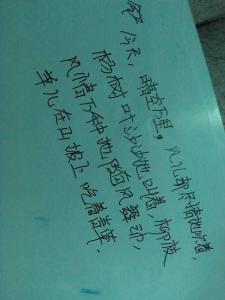 今天，晴空万里，风儿那尽情地吹着，
杨树叶沙沙地叫着，柳枝
风情万种地随风舞动，
羊儿在山坡上吃着青草。